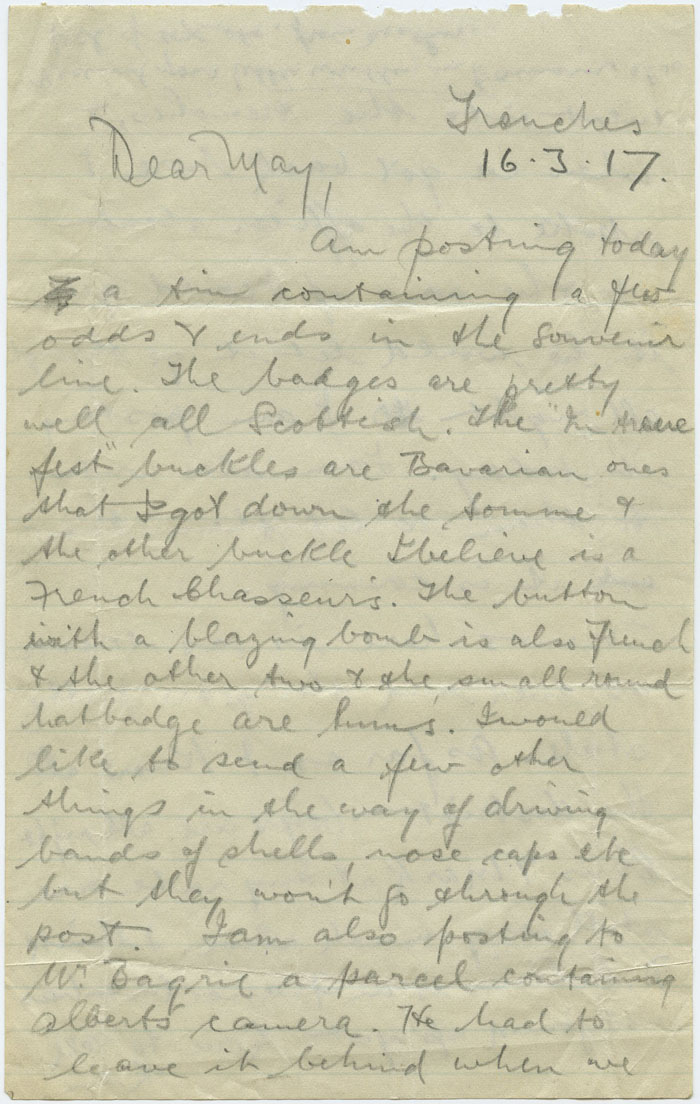 Trenches
16.3.17.
Dear May,
Am posting today
a tin containing a few
odds & ends in the souvenir
line. The badges are pretty
well all Scottish. The "In treue
fest" buckles are Bavarian ones
that I got down the Somme &
the other buckle I believe is a
French Chasseur's. The button
with a blazing bomb is also French
& the other two & the small round
hatbadge are huns. I would
like to send a few other
things in the way of driving
bands of shells, nose caps etc
but they won't go through the
post. I am also posting to
Mr. a parcel containing
Alberts camera. He had to
leave it behind when we